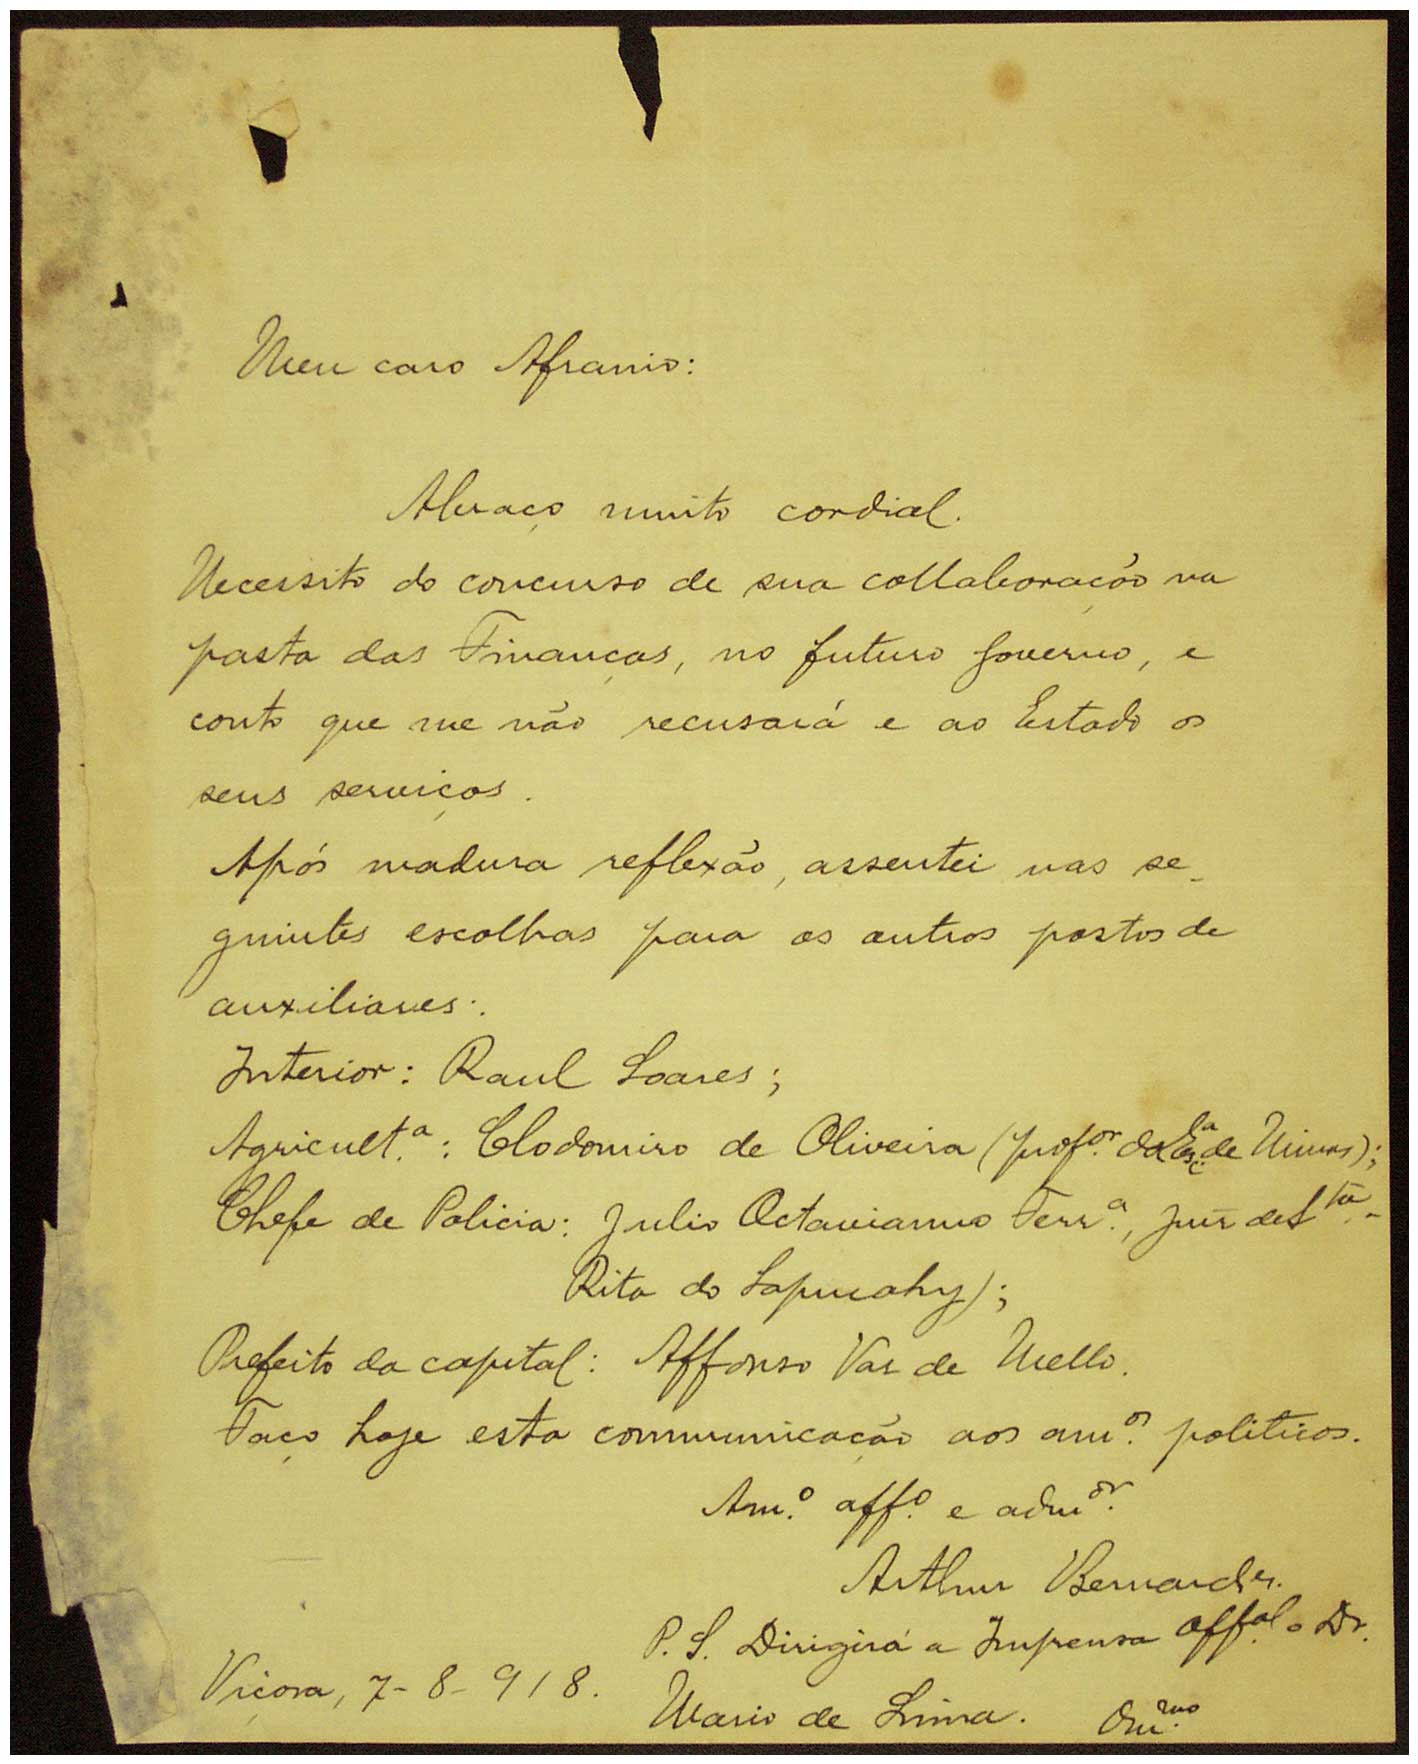 Meu caro Afranio:
Abraço muito cordial.
Necessito do concurso de sua collaboração na
pasta das Finanças, no futuro governo, e
conto que me não recusará e ao Estado os
seus serviços.
Após madura reflexão, assentei nas se-
guintes escolhas para os outros postos de
auxiliares:
Interior: Raul Soares;
Agricult.ª: Clodomiro de Oliveira (prof.or da Esc.la de Minas);
Chefe de Policia: Julio Octaviano Ferr.ª, juiz de S.ta
Rita do Sapucahy);
Prefeito da capital: Affonso Vaz de Mello.
Faço hoje esta communicação aos am.os politicos.
Am.º aff.º e adm.or
Arthur Bernardes.
P. S. Dirigirá a Imprensa Off.al o Dr.
Mario de Lima.
Viçosa, 7-8-918.